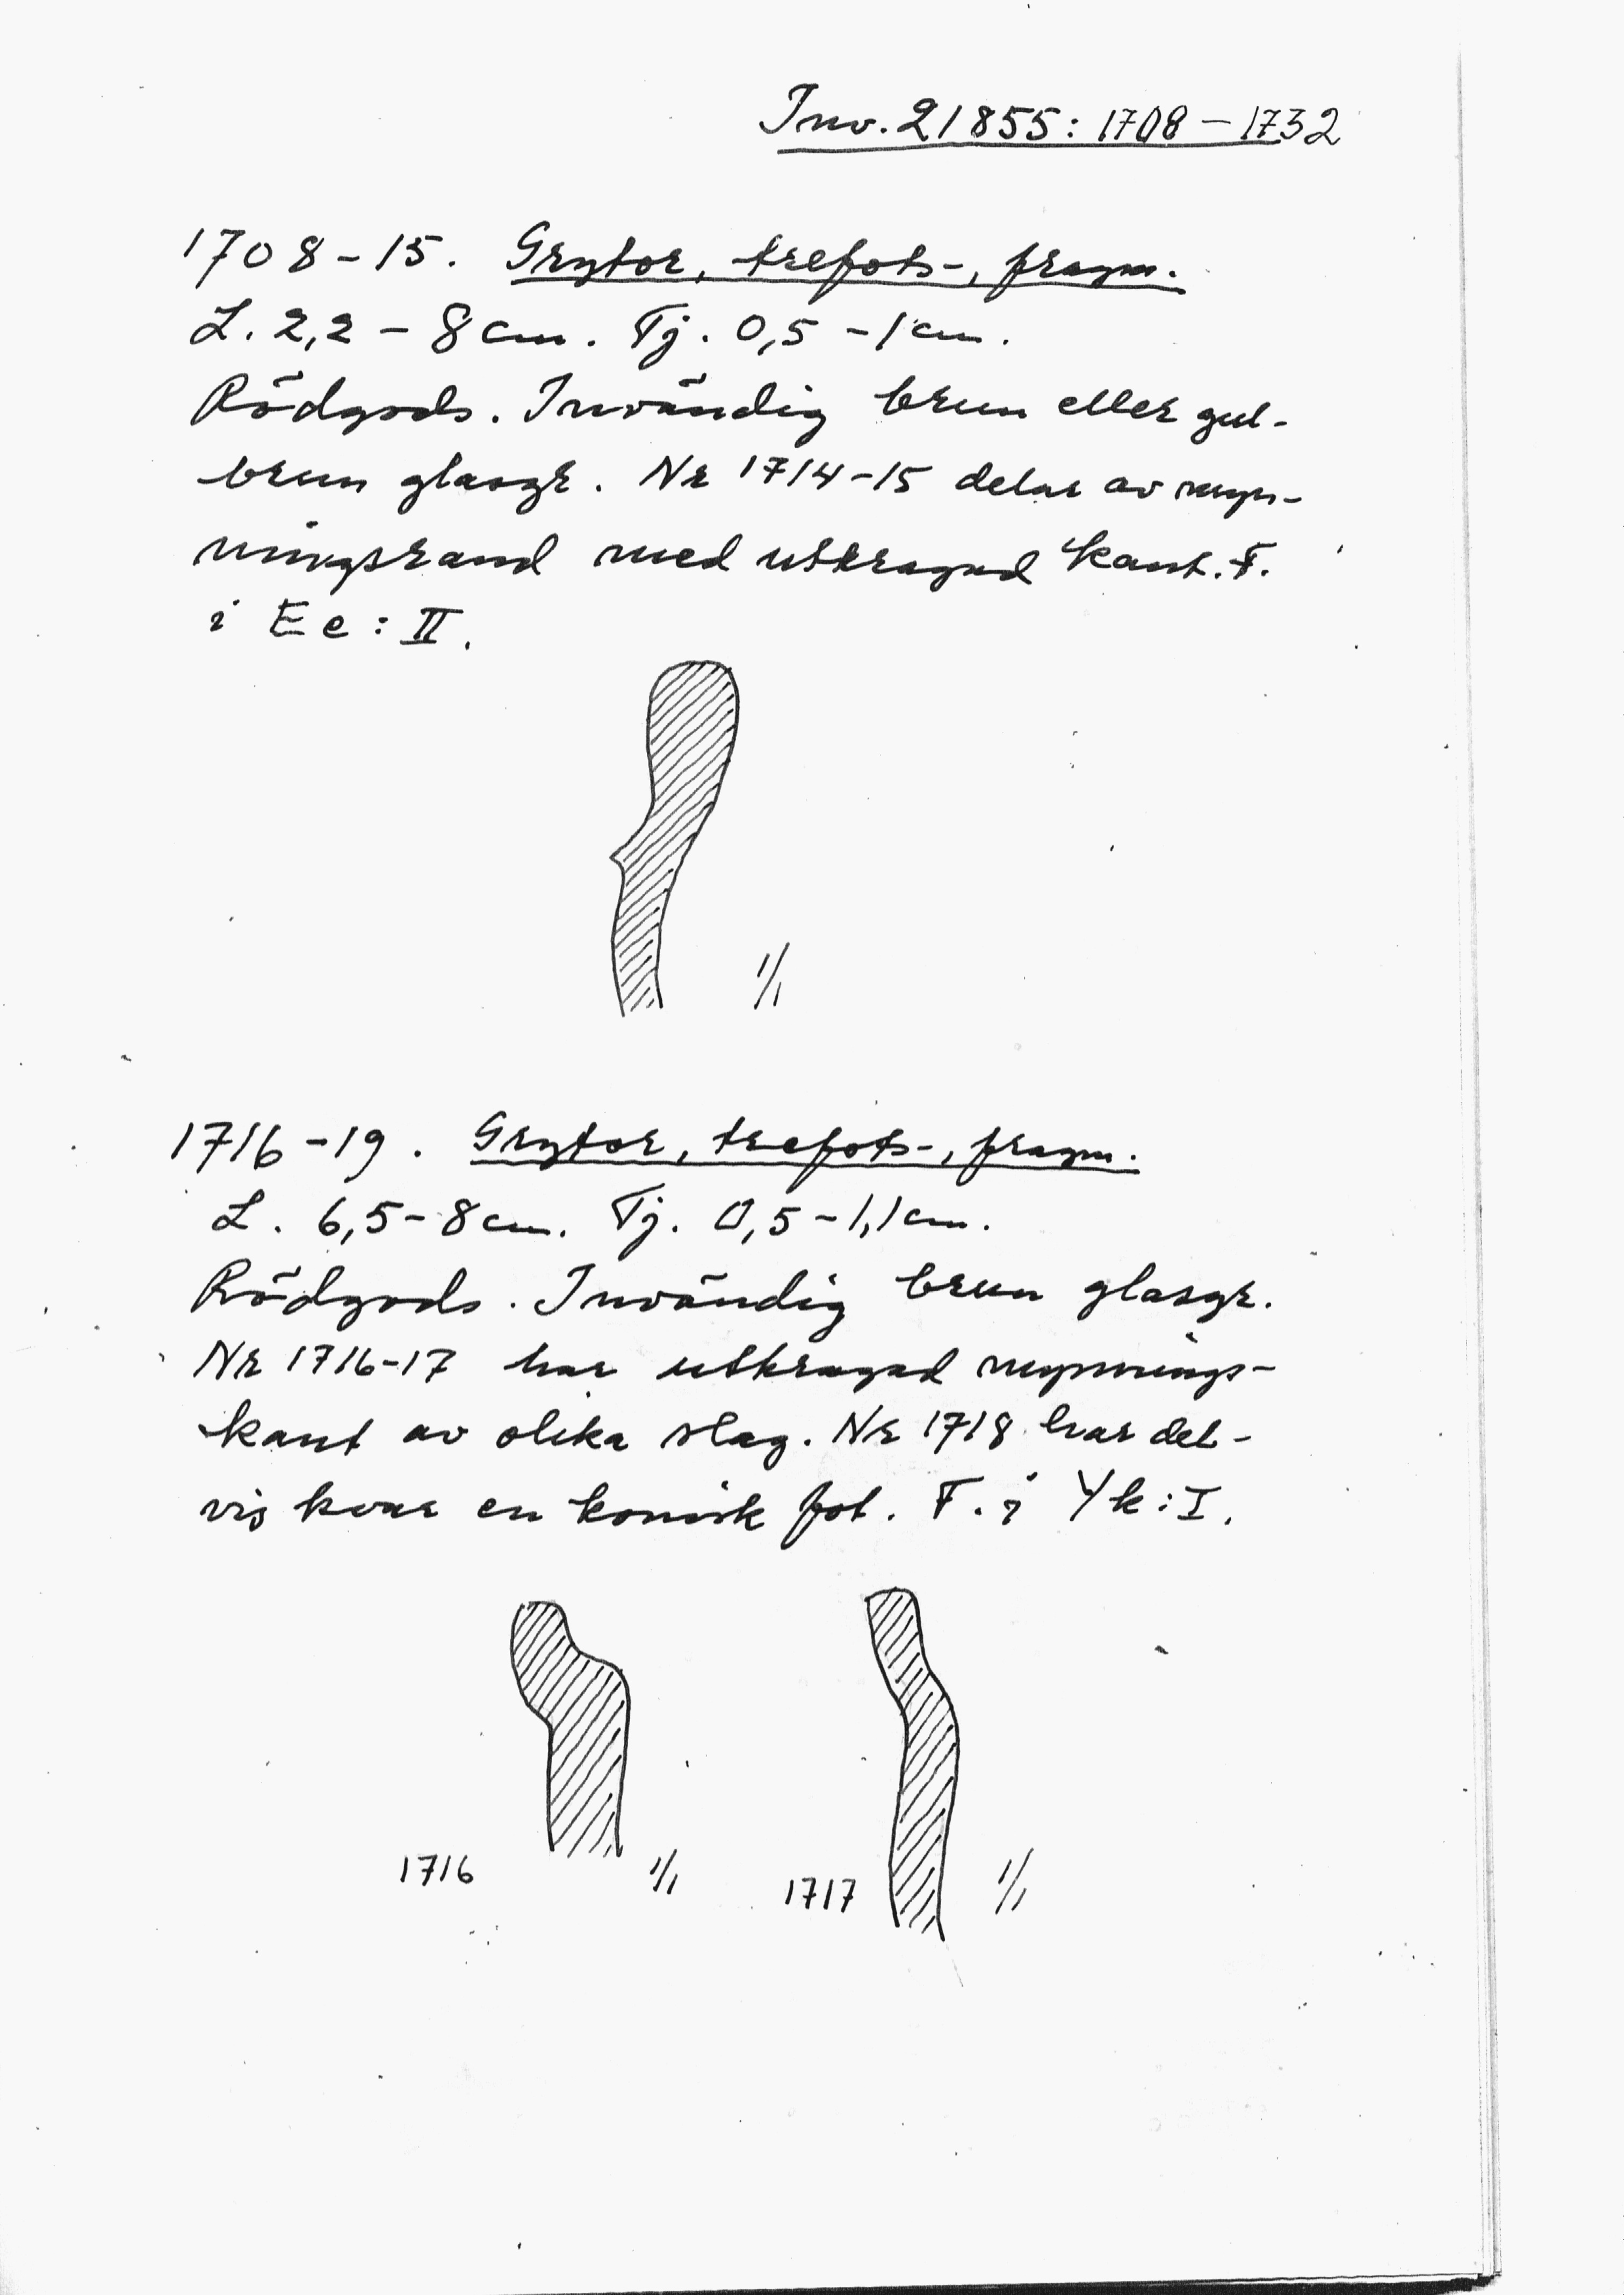 Inv. 21855: 1708 – 1732
1708 - 15. Grytor, trefots-, fragm.
L. 2,2 - 8 cm. Tj. 0,5 - 1 cm.
Rödgods. Invändig brun eller gul-
brun glasyr. Nr 1714-15 delar av myn-
ningsrand med utkragad kant. F.
i Ec : II.
1/1
1716 - 19. Grytor, trefots-, fragm.
L. 6,5 - 8 cm. Tj. 0,5 - 1,1 cm.
Rödgods. Invändig brun glasyr.
Nr 1716-17 har utkragad mynnings-
kant av olika slag. Nr 1718 har del-
vis kvar en konisk fot. F. i Yk : I.
1716 1/1 1717 1/1